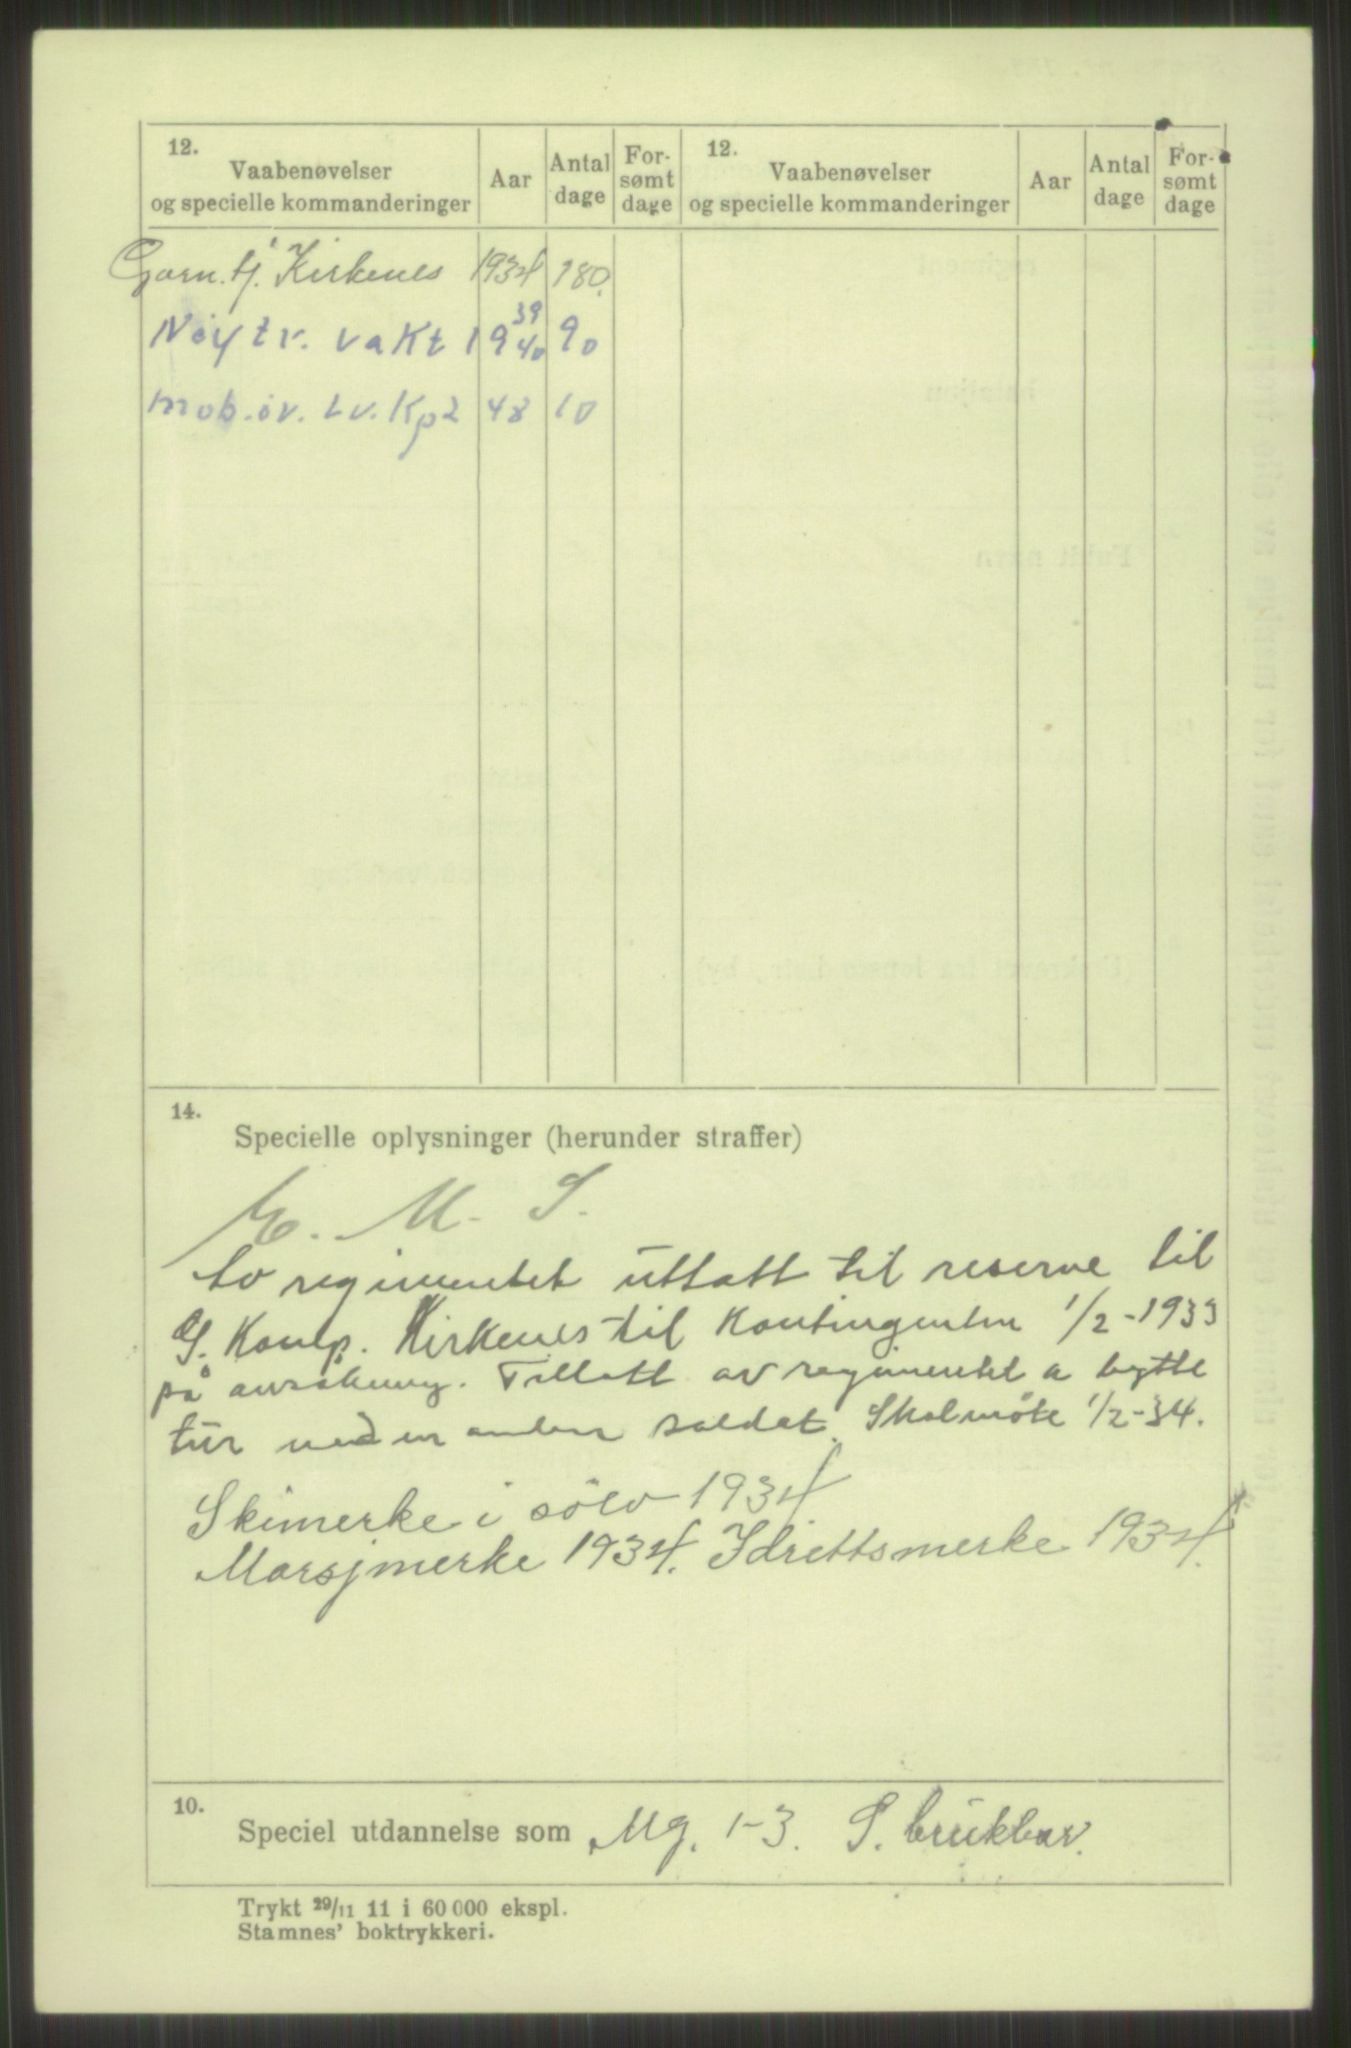 12. Vaabenøvelser og specielle kommanderinger Aar Antal dage For-sømt dage 12. Vaabenøvelser og specielle kommanderinger Aar Antal dage For-sømt dage
Garn. tj. Kirkenes 1934 180.
Nøytr. vakt 1939 40 90
Mob. øv. Lv. Kp 2 48 10
14.
Specielle oplysninger (herunder straffer)
E. M. S.
Av regimentet uttatt til reserve til
G. Komp. Kirkenes til kontingenten 1/2-1933
på ansøkning. Tillatt av regimentet a bytte
tur med en anden soldat. Skal møte 1/2-34.
Skimerke i sölv 1934
Marsjmerke 1934. Idrettsmerke 1934.
10.
Speciel utdannelse som Mg. 1-3. S. brukbar.
Trykt 29/11 11 i 60 000 ekspl.
Stamnes' boktrykkeri.